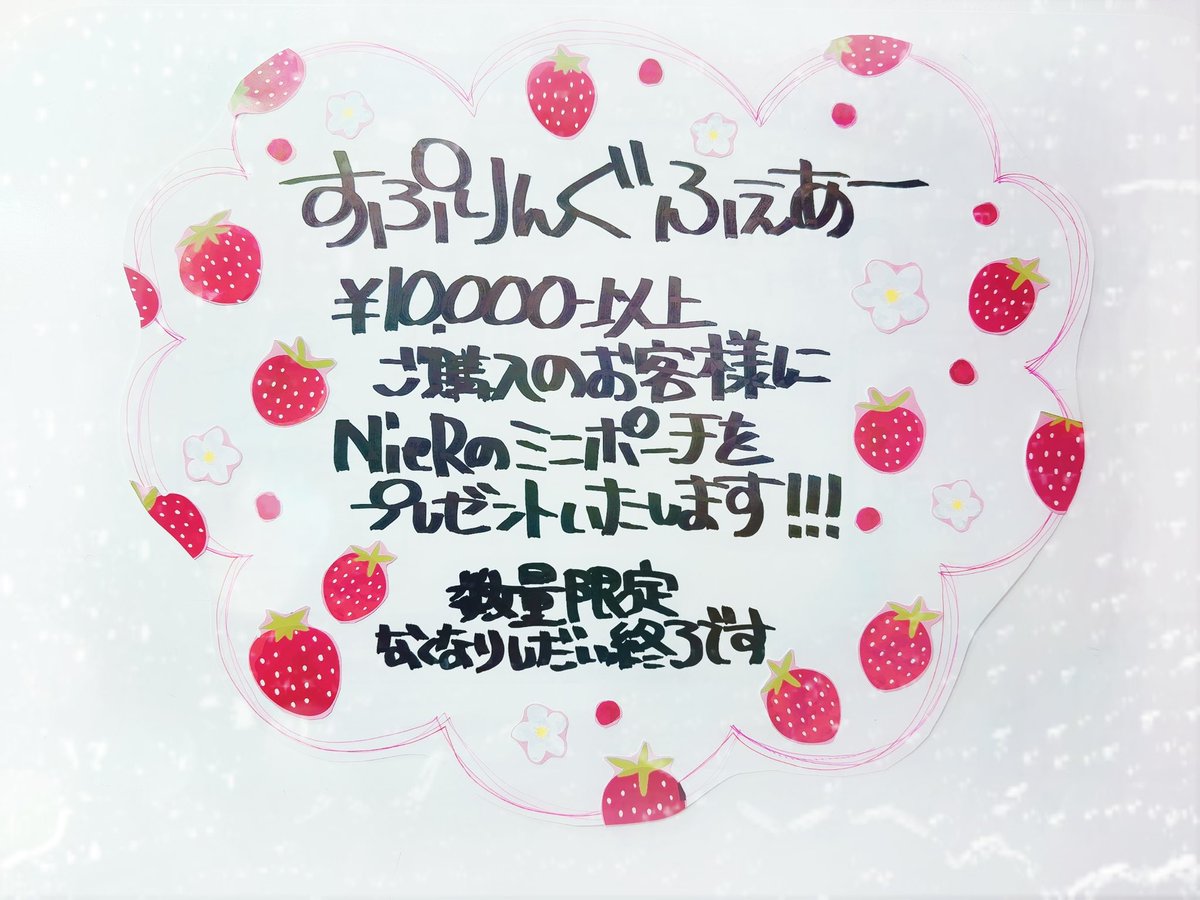 すぷりんぐふぇあー
¥10,000以上
ご購入のお客様に
NieRのミニポーチを
プレゼントいたします!!!
数量限定
なくなりしだい終了です